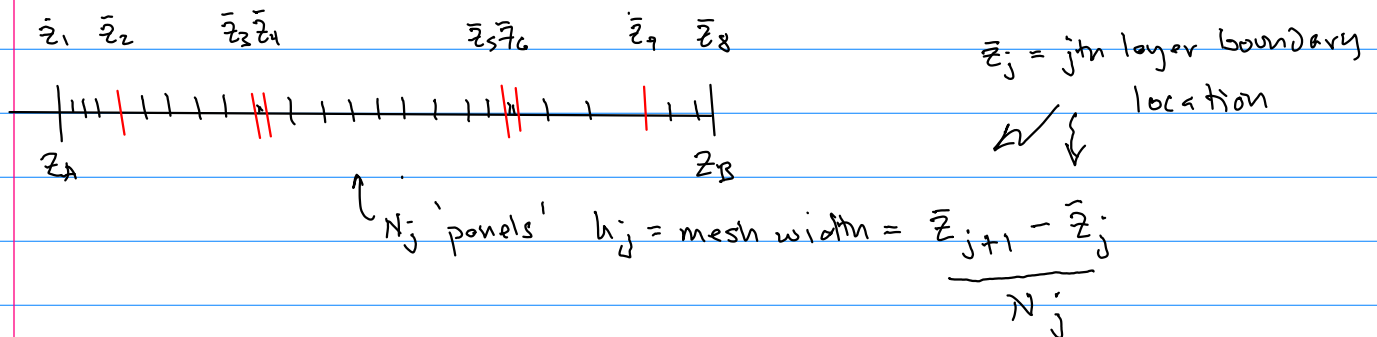 z̄₁ z̄₂ z̄₃ z̄₄ z̄₅ z̄₆ z̄₉ z̄₈
z̄ⱼ = jth layer boundary
location
z_A z_B
Nⱼ 'panels' hⱼ = mesh width = (z̄ⱼ₊₁ - z̄ⱼ) / Nⱼ